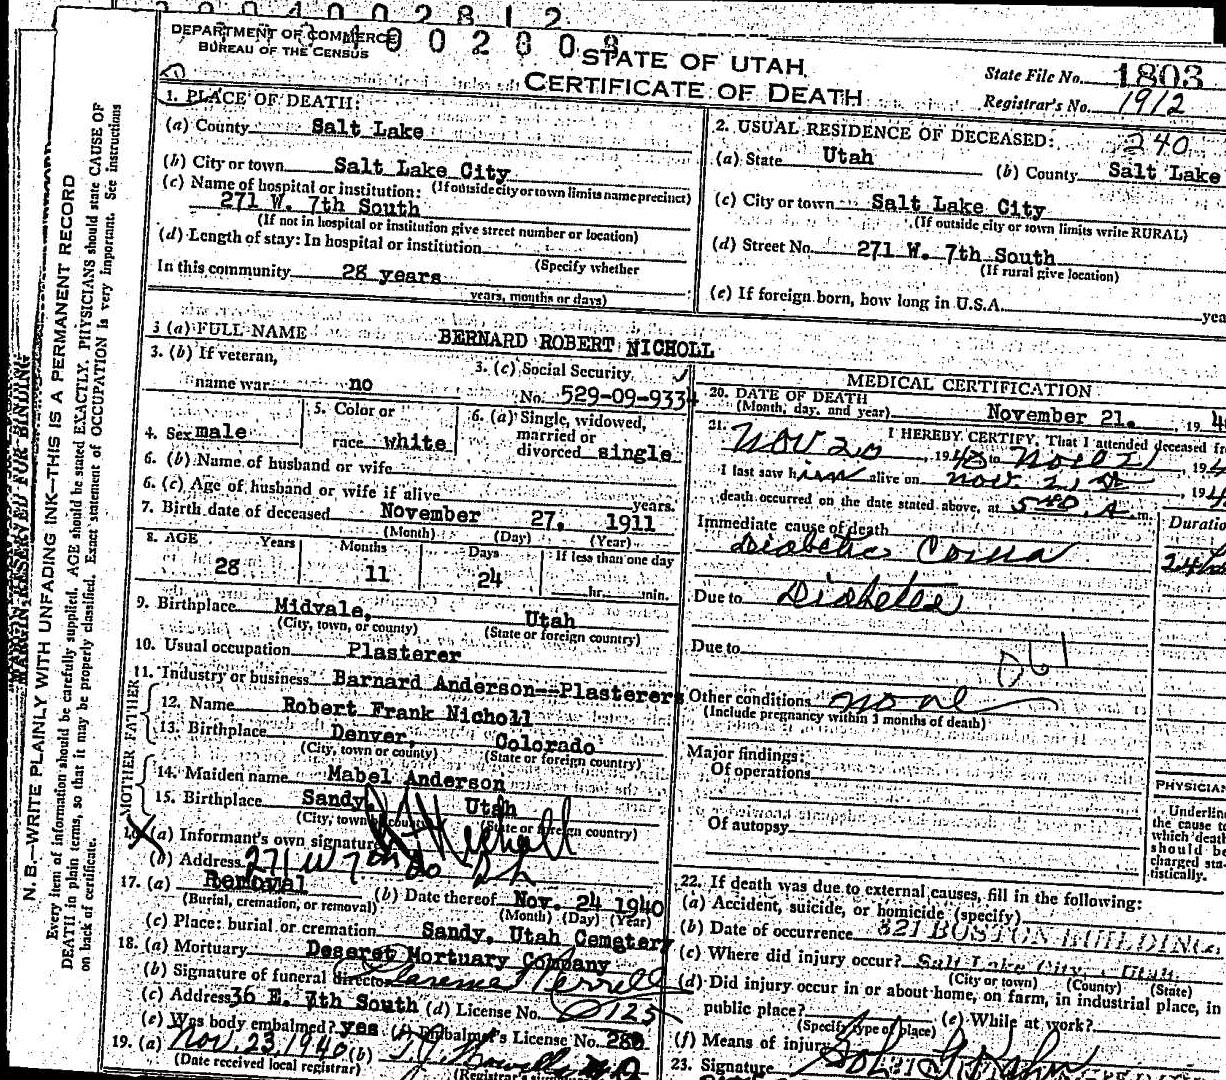 DEPARTMENT OF COMMERCE
BUREAU OF THE CENSUS
STATE OF UTAH
CERTIFICATE OF DEATH
State File No. 1803
Registrar's No. 1912
1. PLACE OF DEATH:
(a) County Salt Lake
(b) City or town Salt Lake City
(If outside city or town limits name precinct)
(c) Name of hospital or institution:
271 W. 7th South
(If not in hospital or institution give street number or location)
(d) Length of stay: In hospital or institution
(Specify whether
In this community 28 years
years, months or days)
2. USUAL RESIDENCE OF DECEASED: 240
(a) State Utah (b) County Salt Lake
(c) City or town Salt Lake City
(If outside city or town limits write RURAL)
(d) Street No. 271 W. 7th South
(If rural give location)
(e) If foreign born, how long in U.S.A. yea
3 (a) FULL NAME BERNARD ROBERT NICHOLL
3. (b) If veteran,
name war no
3. (c) Social Security
No. 529-09-9334
4. Sex male
5. Color or
race white
6. (a) Single, widowed,
married or
divorced single
6. (b) Name of husband or wife
6. (c) Age of husband or wife if alive years.
7. Birth date of deceased November 27. 1911
(Month) (Day) (Year)
8. AGE Years Months Days If less than one day
28 11 24 hr. min.
9. Birthplace Midvale, Utah
(City, town, or county) (State or foreign country)
10. Usual occupation Plasterer
11. Industry or business Barnard Anderson--Plasterers
FATHER
12. Name Robert Frank Nicholl
13. Birthplace Denver, Colorado
(City, town or county) (State or foreign country)
MOTHER
14. Maiden name Mabel Anderson
15. Birthplace Sandy, Utah
(City, town or county) (State or foreign country)
(a) Informant's own signature Nicholl
(b) Address 271 W 7th So
17. (a) Removal (b) Date thereof Nov. 24 1940
(Burial, cremation, or removal) (Month) (Day) (Year)
(c) Place: burial or cremation Sandy, Utah Cemetery
18. (a) Mortuary Deseret Mortuary Company
(b) Signature of funeral director
(c) Address 36 E. 7th South (d) License No. 125
(e) Was body embalmed? yes (f) Embalmer's License No. 280
19. (a) Nov. 23, 1940 (b)
(Date received local registrar)
MEDICAL CERTIFICATION
20. DATE OF DEATH
(Month, day, and year) November 21. 19 4
21. I HEREBY CERTIFY, That I attended deceased fr
Nov 20, 1940 to Nov 21, 194
I last saw him alive on Nov 21 st, 194
death occurred on the date stated above, at 5:40 A. m.
Immediate cause of death Duratio
Diabetic Coma 24
Due to Diabetes
Due to
061
Other conditions none
(Include pregnancy within 3 months of death)
Major findings:
Of operations
Of autopsy
PHYSICIAN
Underlin
the cause to
which death
should be
charged sta-
tistically.
22. If death was due to external causes, fill in the following:
(a) Accident, suicide, or homicide (specify)
(b) Date of occurrence 321 BOSTON BUILDING
(c) Where did injury occur? Salt Lake City, Utah
(City or town) (County) (State)
(d) Did injury occur in or about home, on farm, in industrial place, in
public place? (e) While at work?
(Specify type of place)
(f) Means of injury
23. Signature Sol G Kahn
MARGIN RESERVED FOR BINDING
N. B.—WRITE PLAINLY WITH UNFADING INK—THIS IS A PERMANENT RECORD
Every item of information should be carefully supplied. AGE should be stated EXACTLY. PHYSICIANS should state CAUSE OF
DEATH in plain terms, so that it may be properly classified. Exact statement of OCCUPATION is very important. See instructions
on back of certificate.